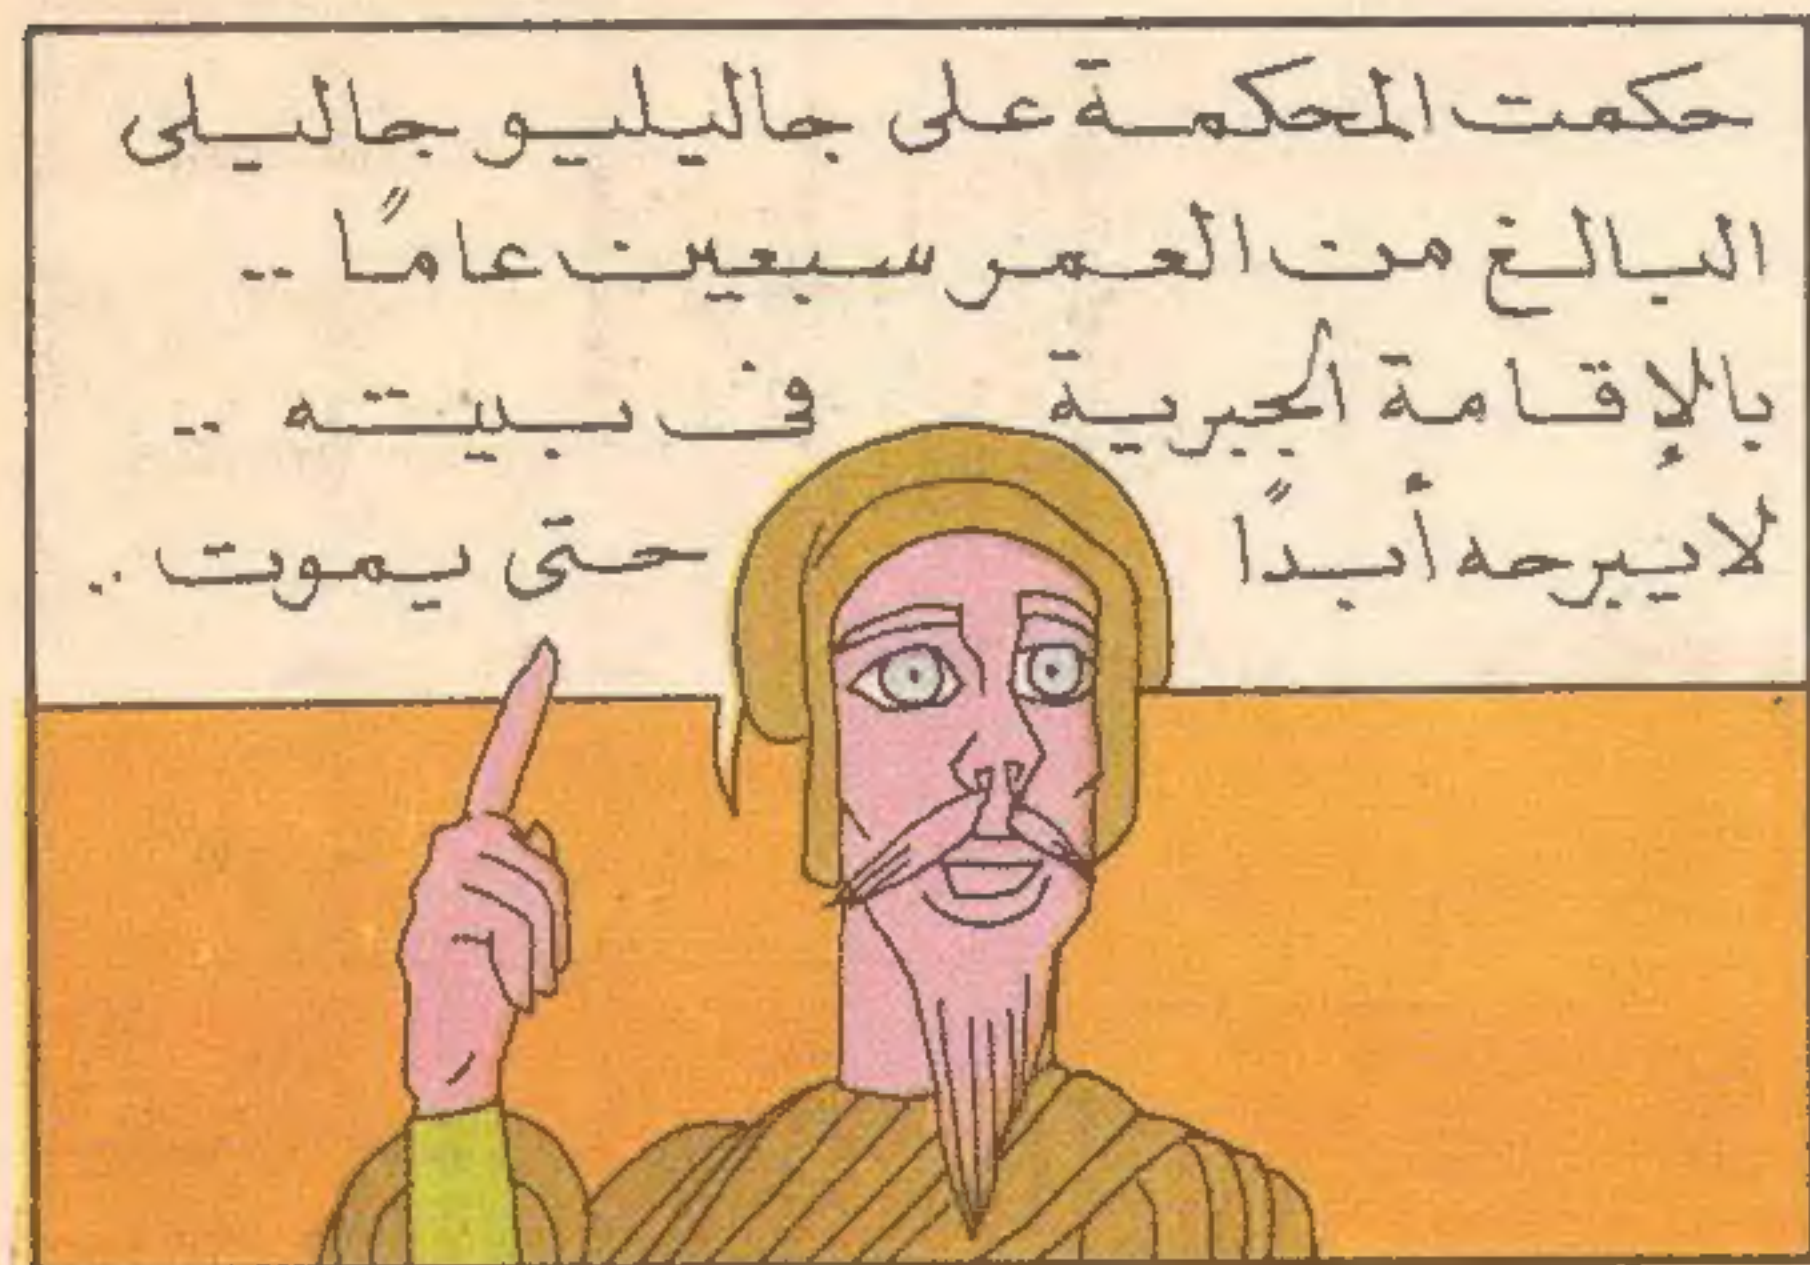 حكمت المحكمة على جاليليو جاليلى
البالغ من العمر سبعين عامًا ..
بالإقامة الجبرية فى بيته ..
لا يبرحه أبدًا حتى يموت ..